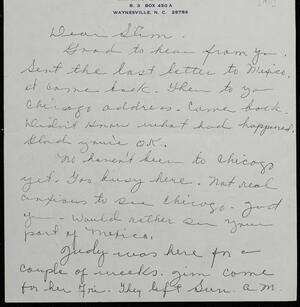 R. 3 BOX 450 A
WAYNESVILLE, N. C. 28786
Dear Slim.
Glad to hear from you.
Sent the last letter to Mexico,
it came back. Then to yo
Chicago address. Came back.
Didn't know what had happened.
Glad you're OK.
No haven't been to Chicago
yet. Too busy here. Not real
anxious to see Chicago - just
you - Would rather see your
part of Mexico.
Judy was here for a
couple of weeks. Jim come
for her Fri. They left Sun. A.M.